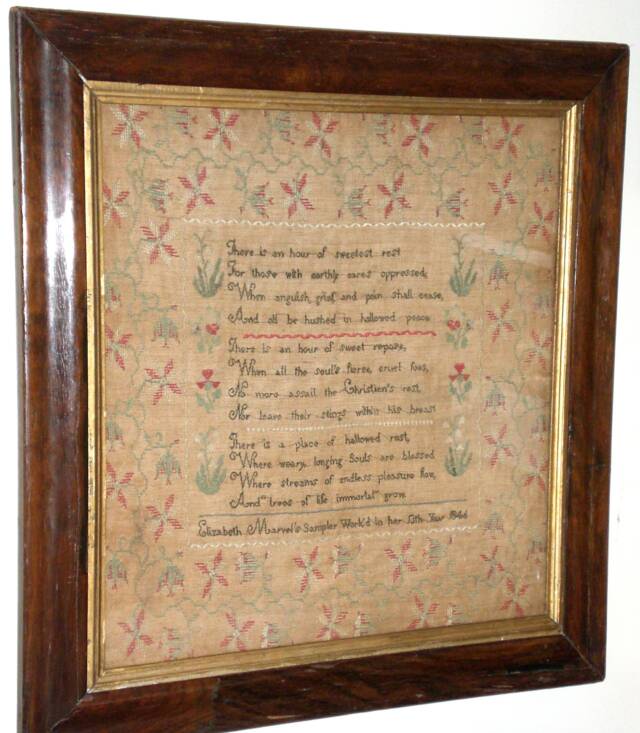 There is an hour of sweetest rest
For those with earthly cares oppressed;
When anguish, grief, and pain shall cease,
And all be hushed in hallowed peace
There is an hour of sweet repose,
When all the soul's fierce, cruel foes,
No more assail the Christien's rest,
Nor leave their stings within his breast
There is a place of hallowed rest,
Where weary, longing Souls are blessed
Where streams of endless pleasure flow,
And "trees of life immortal" grow
Elizabeth Marvel's Sampler Work'd in her Year 1846